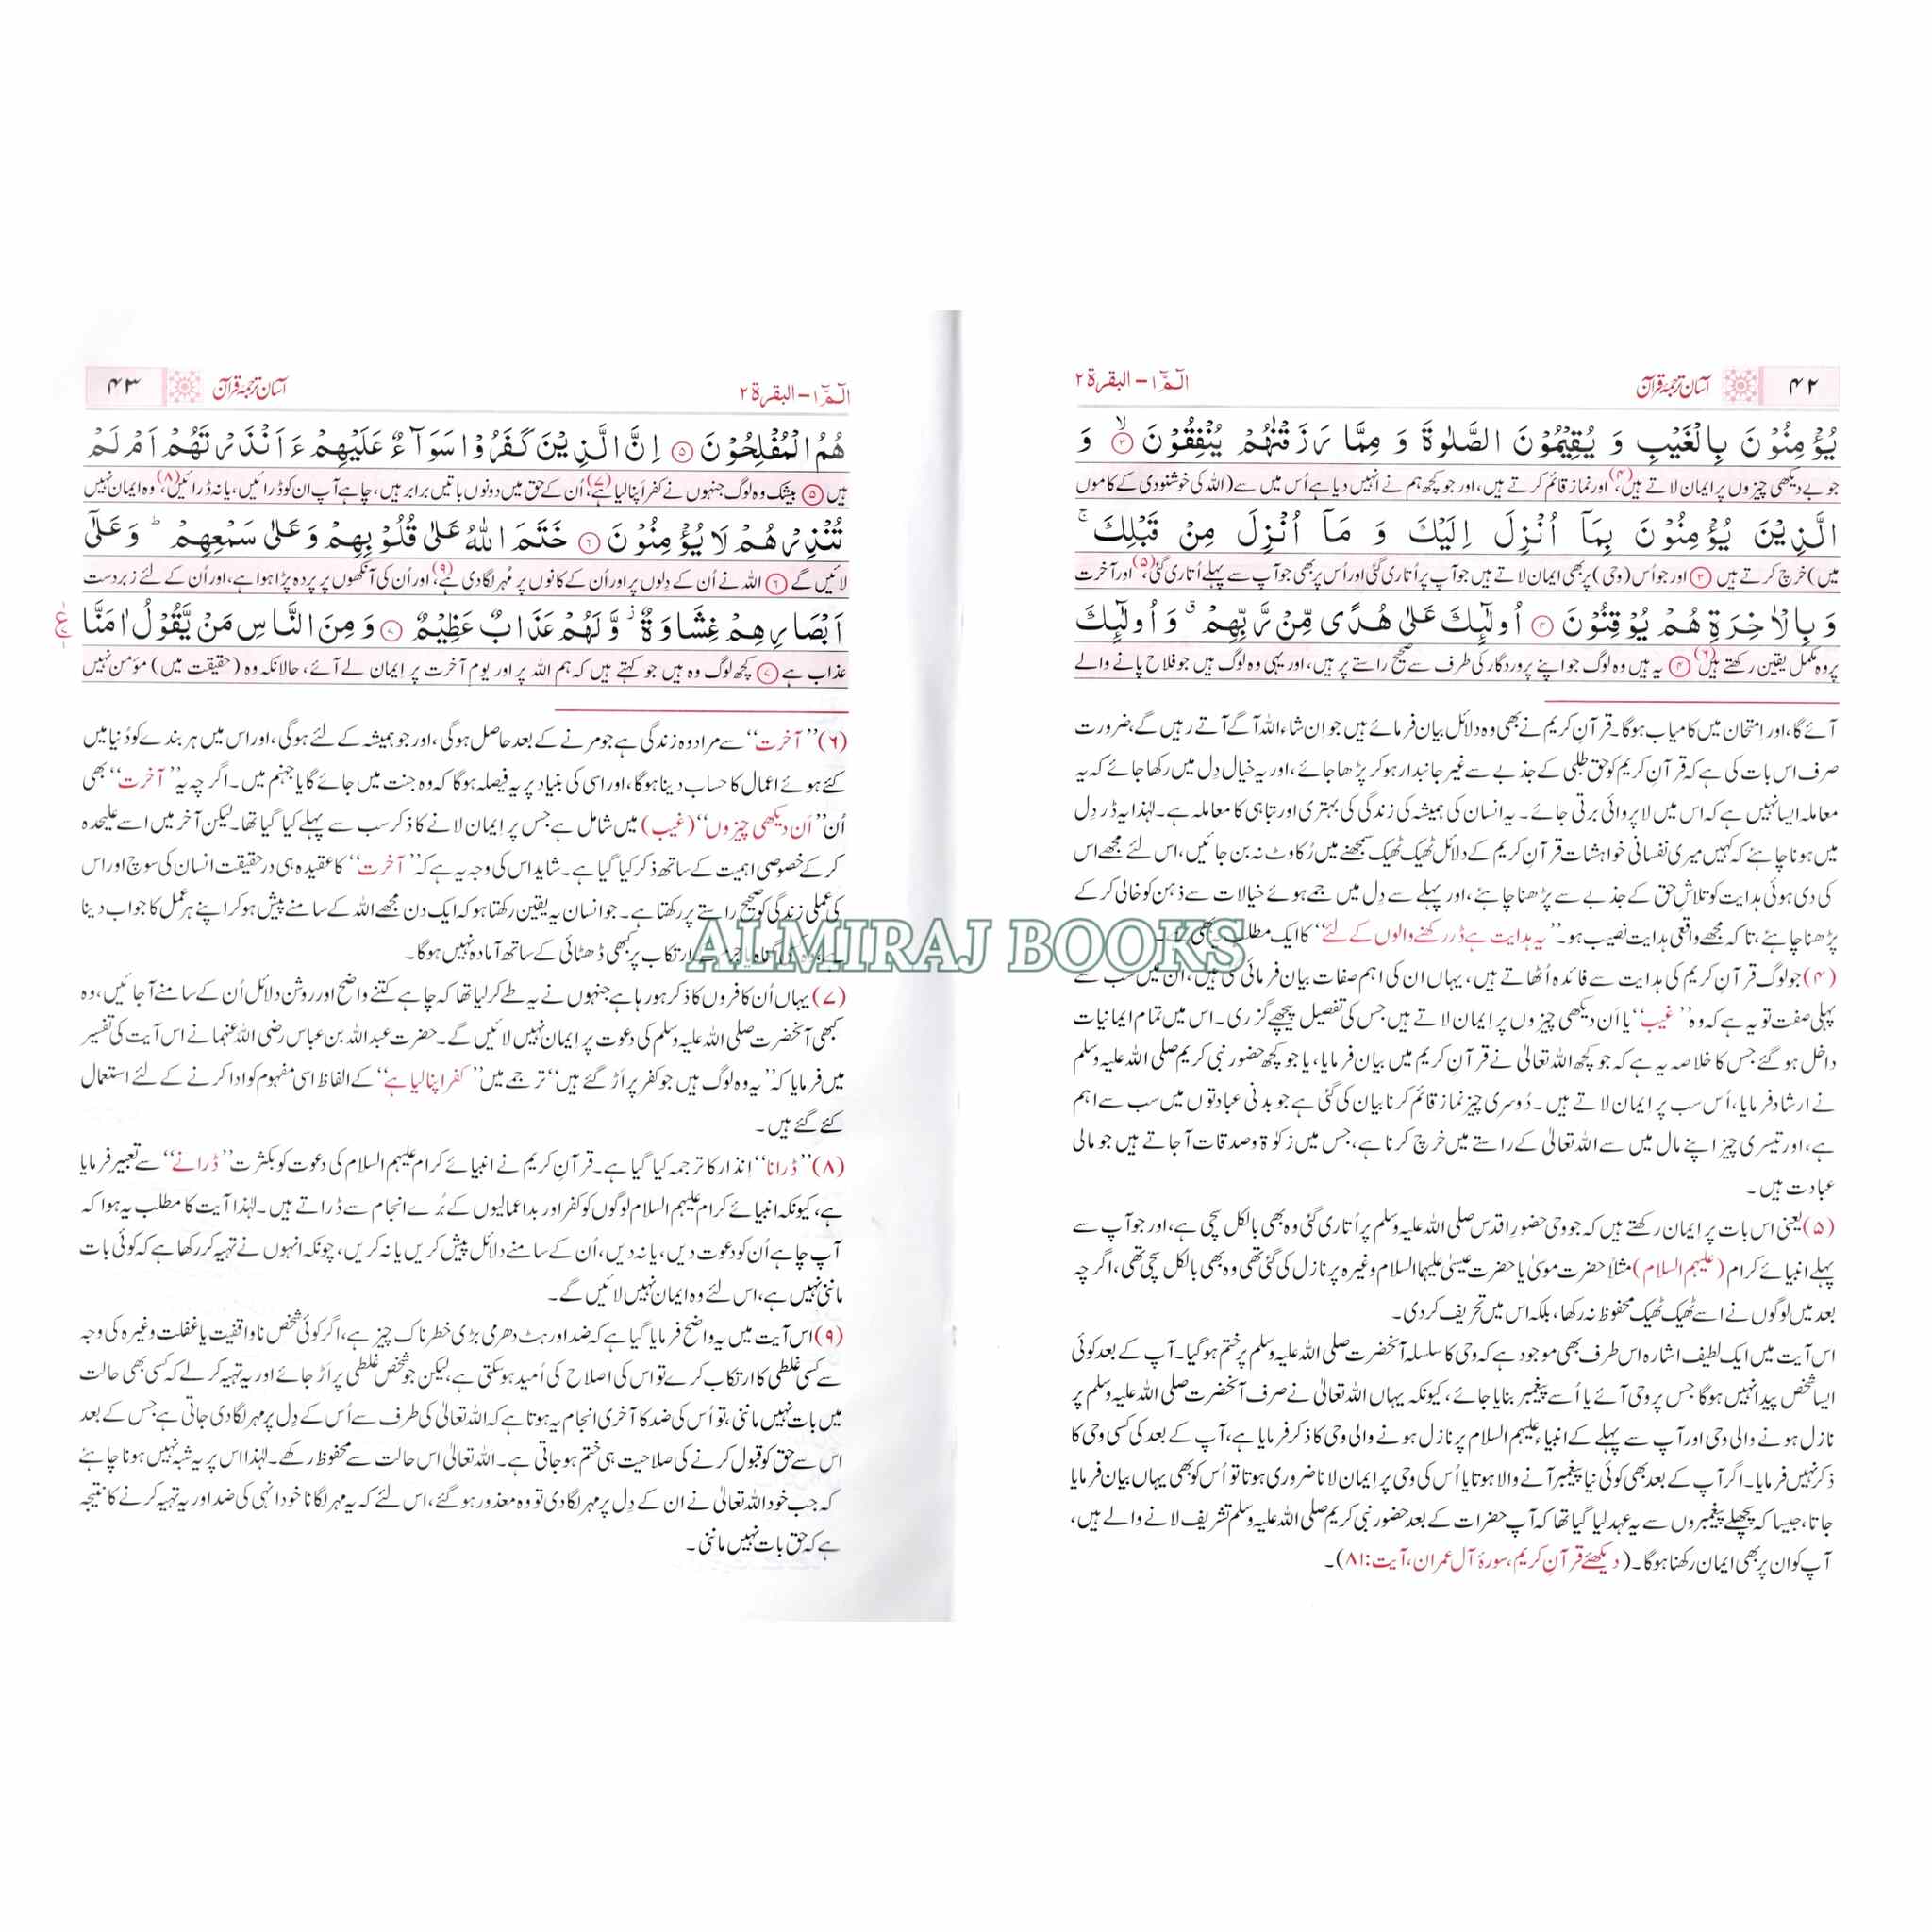 ۴۲ آسان ترجمۂ قرآن الٓمّٓ ۱ – البقرۃ ۲
يُؤۡمِنُوۡنَ بِالۡغَيۡبِ وَ يُقِيۡمُوۡنَ الصَّلٰوةَ وَ مِمَّا رَزَقۡنٰهُمۡ يُنۡفِقُوۡنَ ﴿۳﴾ۙ وَ
جو بے دیکھی چیزوں پر ایمان لاتے ہیں،(۴) اور نماز قائم کرتے ہیں، اور جو کچھ ہم نے انہیں دیا ہے اُس میں سے (اللہ کی خوشنودی کے کاموں
الَّذِيۡنَ يُؤۡمِنُوۡنَ بِمَاۤ اُنۡزِلَ اِلَيۡكَ وَ مَاۤ اُنۡزِلَ مِنۡ قَبۡلِكَ ۚ
میں) خرچ کرتے ہیں ﴿۳﴾ اور جو اُس (وحی) پر بھی ایمان لاتے ہیں جو آپ پر اُتاری گئی اور اُس پر بھی جو آپ سے پہلے اُتاری گئی،(۵) اور آخرت
وَ بِالۡاٰخِرَةِ هُمۡ يُوۡقِنُوۡنَ ﴿۴﴾ اُولٰٓئِكَ عَلٰى هُدًى مِّنۡ رَّبِّهِمۡ ۗ وَ اُولٰٓئِكَ
پر وہ مکمل یقین رکھتے ہیں(۶) ﴿۴﴾ یہ ہیں وہ لوگ جو اپنے پروردگار کی طرف سے صحیح راستے پر ہیں، اور یہی وہ لوگ ہیں جو فلاح پانے والے
آئے گا، اور اِمتحان میں کامیاب ہوگا۔ قرآنِ کریم نے بھی وہ دلائل بیان فرمائے ہیں جو اِن شاء اللہ آگے آتے رہیں گے، ضرورت
صرف اس بات کی ہے کہ قرآنِ کریم کو حق طلبی کے جذبے سے غیر جانبدار ہو کر پڑھا جائے، اور یہ خیال دِل میں رکھا جائے کہ یہ
معاملہ ایسا نہیں ہے کہ اس میں لاپروائی برتی جائے۔ یہ انسان کی ہمیشہ کی زندگی کی بہتری اور تباہی کا معاملہ ہے۔ لہٰذا یہ ڈر دِل
میں ہونا چاہئے کہ کہیں میری نفسانی خواہشات قرآنِ کریم کے دلائل ٹھیک ٹھیک سمجھنے میں رُکاوٹ نہ بن جائیں، اس لئے مجھے اس
کی دی ہوئی ہدایت کو تلاشِ حق کے جذبے سے پڑھنا چاہئے، اور پہلے سے دِل میں جمے ہوئے خیالات سے ذہن کو خالی کر کے
پڑھنا چاہئے، تاکہ مجھے واقعی ہدایت نصیب ہو۔ ”یہ ہدایت ہے ڈر رکھنے والوں کے لئے“ کا ایک مطلب
(۴) جو لوگ قرآنِ کریم کی ہدایت سے فائدہ اُٹھاتے ہیں، یہاں ان کی اہم صفات بیان فرمائی گئی ہیں، ان میں سب سے
پہلی صفت تو یہ ہے کہ وہ ”غیب“ یا اَن دیکھی چیزوں پر ایمان لاتے ہیں جس کی تفصیل پیچھے گزری۔ اس میں تمام ایمانیات
داخل ہو گئے جس کا خلاصہ یہ ہے کہ جو کچھ اللہ تعالیٰ نے قرآنِ کریم میں بیان فرمایا، یا جو کچھ حضور نبی کریم صلی اللہ علیہ وسلم
نے ارشاد فرمایا، اُس سب پر ایمان لاتے ہیں۔ دُوسری چیز نماز قائم کرنا بیان کی گئی ہے جو بدنی عبادتوں میں سب سے اہم
ہے، اور تیسری چیز اپنے مال میں سے اللہ تعالیٰ کے راستے میں خرچ کرنا ہے، جس میں زکوٰۃ و صدقات آ جاتے ہیں جو مالی
عبادت ہیں۔
(۵) یعنی اس بات پر ایمان رکھتے ہیں کہ جو وحی حضورِ اقدس صلی اللہ علیہ وسلم پر اُتاری گئی وہ بھی بالکل سچی ہے، اور جو آپ سے
پہلے انبیائے کرام (علیہم السلام) مثلاً حضرت موسیٰ یا حضرت عیسیٰ علیہما السلام وغیرہ پر نازل کی گئی تھی وہ بھی بالکل سچی تھی، اگرچہ
بعد میں لوگوں نے اسے ٹھیک ٹھیک محفوظ نہ رکھا، بلکہ اس میں تحریف کر دی۔
اس آیت میں ایک لطیف اشارہ اس طرف بھی موجود ہے کہ وحی کا سلسلہ آنحضرت صلی اللہ علیہ وسلم پر ختم ہو گیا۔ آپ کے بعد کوئی
ایسا شخص پیدا نہیں ہوگا جس پر وحی آئے یا اُسے پیغمبر بنایا جائے، کیونکہ یہاں اللہ تعالیٰ نے صرف آنحضرت صلی اللہ علیہ وسلم پر
نازل ہونے والی وحی اور آپ سے پہلے کے انبیاء علیہم السلام پر نازل ہونے والی وحی کا ذکر فرمایا ہے، آپ کے بعد کی کسی وحی کا
ذکر نہیں فرمایا۔ اگر آپ کے بعد بھی کوئی نیا پیغمبر آنے والا ہوتا یا اُس کی وحی پر ایمان لانا ضروری ہوتا تو اُس کو بھی یہاں بیان فرمایا
جاتا، جیسا کہ پچھلے پیغمبروں سے یہ عہد لیا گیا تھا کہ آپ حضرات کے بعد حضور نبی کریم صلی اللہ علیہ وسلم تشریف لانے والے ہیں،
آپ کو ان پر بھی ایمان رکھنا ہوگا۔ (دیکھئے قرآنِ کریم، سورۂ آل عمران، آیت: ۸۱)۔
الٓمّٓ ۱ – البقرۃ ۲ آسان ترجمۂ قرآن ۴۳
هُمُ الۡمُفۡلِحُوۡنَ ﴿۵﴾ اِنَّ الَّذِيۡنَ كَفَرُوۡا سَوَآءٌ عَلَيۡهِمۡ ءَاَنۡذَرۡتَهُمۡ اَمۡ لَمۡ
ہیں ﴿۵﴾ بیشک وہ لوگ جنہوں نے کفر اَپنا لیا ہے،(۷) اُن کے حق میں دونوں باتیں برابر ہیں، چاہے آپ ان کو ڈرائیں، یا نہ ڈرائیں،(۸) وہ ایمان نہیں
تُنۡذِرۡهُمۡ لَا يُؤۡمِنُوۡنَ ﴿۶﴾ خَتَمَ اللّٰهُ عَلٰى قُلُوۡبِهِمۡ وَ عَلٰى سَمۡعِهِمۡ ؕ وَ عَلٰٓى
لائیں گے ﴿۶﴾ اللہ نے اُن کے دِلوں پر اور اُن کے کانوں پر مُہر لگا دی ہے،(۹) اور اُن کی آنکھوں پر پردہ پڑا ہوا ہے، اور اُن کے لئے زبردست
اَبۡصَارِهِمۡ غِشَاوَةٌ ۫ وَّ لَهُمۡ عَذَابٌ عَظِيۡمٌ ﴿۷﴾ وَ مِنَ النَّاسِ مَنۡ يَّقُوۡلُ اٰمَنَّا ع
عذاب ہے ﴿۷﴾ کچھ لوگ وہ ہیں جو کہتے ہیں کہ ہم اللہ پر اور یومِ آخرت پر ایمان لے آئے، حالانکہ وہ (حقیقت میں) مؤمن نہیں
(۶) ”آخرت“ سے مراد وہ زندگی ہے جو مرنے کے بعد حاصل ہوگی، اور جو ہمیشہ کے لئے ہوگی، اور اس میں ہر بندے کو دُنیا میں
کئے ہوئے اعمال کا حساب دینا ہوگا، اور اسی کی بنیاد پر یہ فیصلہ ہوگا کہ وہ جنت میں جائے گا یا جہنم میں۔ اگرچہ یہ ”آخرت“ بھی
اُن ”اَن دیکھی چیزوں“ (غیب) میں شامل ہے جس پر اِیمان لانے کا ذکر سب سے پہلے کیا گیا تھا۔ لیکن آخر میں اسے علیحدہ
کر کے خصوصی اہمیت کے ساتھ ذکر کیا گیا ہے۔ شاید اس کی وجہ یہ ہے کہ ”آخرت“ کا عقیدہ ہی درحقیقت انسان کی سوچ اور اس
کی عملی زندگی کو صحیح راستے پر رکھتا ہے۔ جو انسان یہ یقین رکھتا ہو کہ ایک دن مجھے اللہ کے سامنے پیش ہو کر اپنے ہر عمل کا جواب دینا
ارتکاب پر کبھی ڈھٹائی کے ساتھ آمادہ نہیں ہوگا۔
ALMIRAJ BOOKS
(۷) یہاں اُن کافروں کا ذکر ہو رہا ہے جنہوں نے یہ طے کر لیا تھا کہ چاہے کتنے واضح اور روشن دلائل اُن کے سامنے آ جائیں، وہ
کبھی آنحضرت صلی اللہ علیہ وسلم کی دعوت پر ایمان نہیں لائیں گے۔ حضرت عبداللہ بن عباس رضی اللہ عنہما نے اس آیت کی تفسیر
میں فرمایا کہ ”یہ وہ لوگ ہیں جو کفر پر اَڑ گئے ہیں“ ترجمے میں ”کفر اپنا لیا ہے“ کے الفاظ اسی مفہوم کو ادا کرنے کے لئے استعمال
کئے گئے ہیں۔
(۸) ”ڈرانا“ اِنذار کا ترجمہ کیا گیا ہے۔ قرآنِ کریم نے انبیائے کرام علیہم السلام کی دعوت کو بکثرت ”ڈرانے“ سے تعبیر فرمایا
ہے، کیونکہ انبیائے کرام علیہم السلام لوگوں کو کفر اور بداعمالیوں کے بُرے انجام سے ڈراتے ہیں۔ لہٰذا آیت کا مطلب یہ ہوا کہ
آپ چاہے اُن کو دعوت دیں، یا نہ دیں، اُن کے سامنے دلائل پیش کریں یا نہ کریں، چونکہ انہوں نے تہیہ کر رکھا ہے کہ کوئی بات
ماننی نہیں ہے، اس لئے وہ ایمان نہیں لائیں گے۔
(۹) اس آیت میں یہ واضح فرمایا گیا ہے کہ ضد اور ہٹ دھرمی بڑی خطرناک چیز ہے، اگر کوئی شخص ناواقفیت یا غفلت وغیرہ کی وجہ
سے کسی غلطی کا ارتکاب کرے تو اس کی اصلاح کی اُمید ہو سکتی ہے، لیکن جو شخص غلطی پر اَڑ جائے اور یہ تہیہ کر لے کہ کسی بھی حالت
میں بات نہیں ماننی، تو اُس کی ضد کا آخری انجام یہ ہوتا ہے کہ اللہ تعالیٰ کی طرف سے اُس کے دِل پر مہر لگا دی جاتی ہے جس کے بعد
اس سے حق کو قبول کرنے کی صلاحیت ہی ختم ہو جاتی ہے۔ اللہ تعالیٰ اس حالت سے محفوظ رکھے۔ لہٰذا اس پر یہ شبہ نہیں ہونا چاہئے
کہ جب خود اللہ تعالیٰ نے ان کے دِل پر مہر لگا دی تو وہ معذور ہو گئے، اس لئے کہ یہ مہر لگانا خود انہی کی ضد اور یہ تہیہ کرنے کا نتیجہ
ہے کہ حق بات نہیں ماننی۔